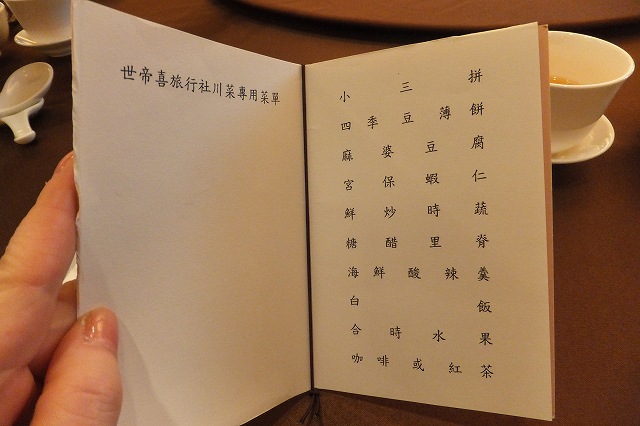 世帝喜旅行社川菜專用菜單
小三拼
四季豆薄餅
麻婆豆腐
宮保蝦仁
鮮炒時蔬
糖醋里脊
海鮮酸辣羹
白飯
合時水果
咖啡或紅茶